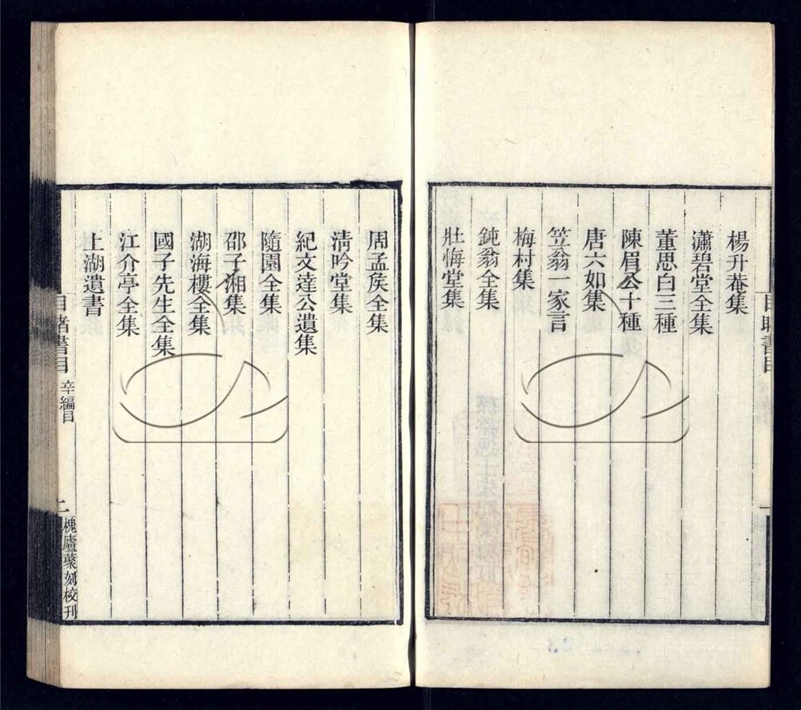 楊升菴集
瀟碧堂全集
董思白三種
陳眉公十種
唐六如集
笠翁一家言
梅村集
鈍翁全集
壯悔堂集
周孟侯全集
清吟堂集
紀文達公遺集
隨園全集
邵子湘集
湖海樓全集
國子先生全集
江介亭全集
上湖遺書
目睹書目 辛編目 二 槐廬叢刻校刊